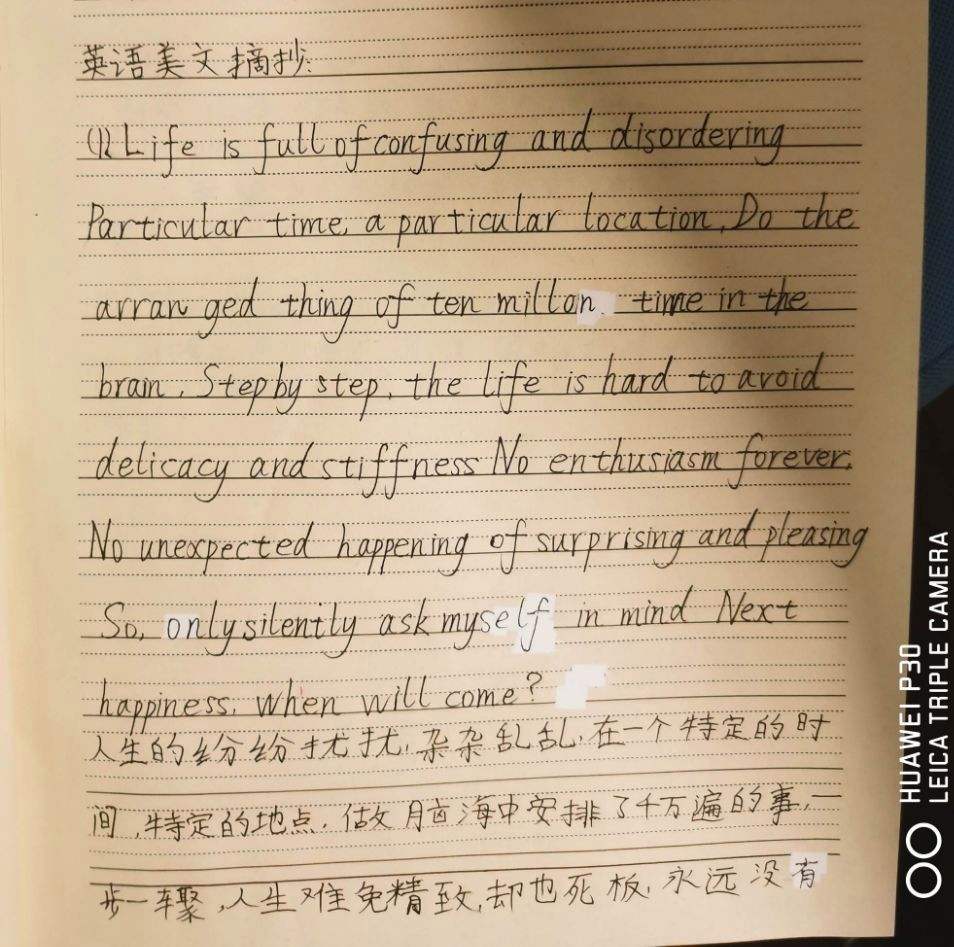 英语美文摘抄:
(1) Life is full of confusing and disordering
Particular time, a particular location, Do the
arran ged thing of ten millon time in the
brain, Step by step, the life is hard to avoid
delicacy and stiffness No enthusiasm forever,
No unexpected happening of surprising and pleasing
So, only silently ask myself in mind Next
happiness, when will come?
人生的纷纷扰扰,杂杂乱乱,在一个特定的时
间,特定的地点,做脑海中安排了千万遍的事,一
步一骤,人生难免精致,却也死板,永远没有
HUAWEI P30
LEICA TRIPLE CAMERA